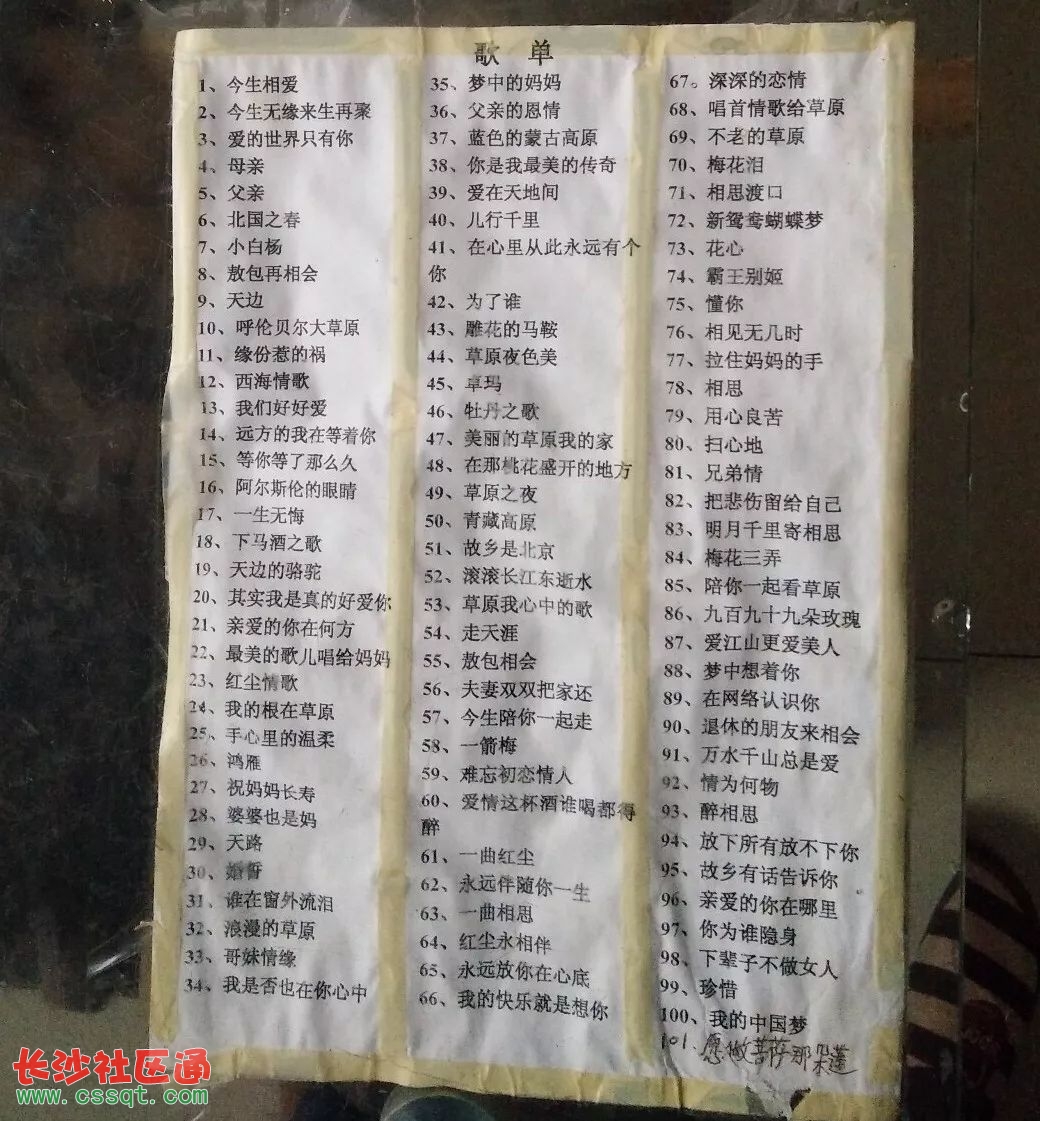 歌 单
1、今生相爱
2、今生无缘来生再聚
3、爱的世界只有你
4、母亲
5、父亲
6、北国之春
7、小白杨
8、敖包再相会
9、天边
10、呼伦贝尔大草原
11、缘份惹的祸
12、西海情歌
13、我们好好爱
14、远方的我在等着你
15、等你等了那么久
16、阿尔斯伦的眼睛
17、一生无悔
18、下马酒之歌
19、天边的骆驼
20、其实我是真的好爱你
21、亲爱的你在何方
22、最美的歌儿唱给妈妈
23、红尘情歌
24、我的根在草原
25、手心里的温柔
26、鸿雁
27、祝妈妈长寿
28、婆婆也是妈
29、天路
30、婚誓
31、谁在窗外流泪
32、浪漫的草原
33、哥妹情缘
34、我是否也在你心中
35、梦中的妈妈
36、父亲的恩情
37、蓝色的蒙古高原
38、你是我最美的传奇
39、爱在天地间
40、儿行千里
41、在心里从此永远有个
你
42、为了谁
43、雕花的马鞍
44、草原夜色美
45、卓玛
46、牡丹之歌
47、美丽的草原我的家
48、在那桃花盛开的地方
49、草原之夜
50、青藏高原
51、故乡是北京
52、滚滚长江东逝水
53、草原我心中的歌
54、走天涯
55、敖包相会
56、夫妻双双把家还
57、今生陪你一起走
58、一箭梅
59、难忘初恋情人
60、爱情这杯酒谁喝都得
醉
61、一曲红尘
62、永远伴随你一生
63、一曲相思
64、红尘永相伴
65、永远放你在心底
66、我的快乐就是想你
67。深深的恋情
68、唱首情歌给草原
69、不老的草原
70、梅花泪
71、相思渡口
72、新鸳鸯蝴蝶梦
73、花心
74、霸王别姬
75、懂你
76、相见无几时
77、拉住妈妈的手
78、相思
79、用心良苦
80、扫心地
81、兄弟情
82、把悲伤留给自己
83、明月千里寄相思
84、梅花三弄
85、陪你一起看草原
86、九百九十九朵玫瑰
87、爱江山更爱美人
88、梦中想着你
89、在网络认识你
90、退休的朋友来相会
91、万水千山总是爱
92、情为何物
93、醉相思
94、放下所有放不下你
95、故乡有话告诉你
96、亲爱的你在哪里
97、你为谁隐身
98、下辈子不做女人
99、珍惜
100、我的中国梦
101.愿做菩萨那朵莲
长沙社区通
www.cssqt.com